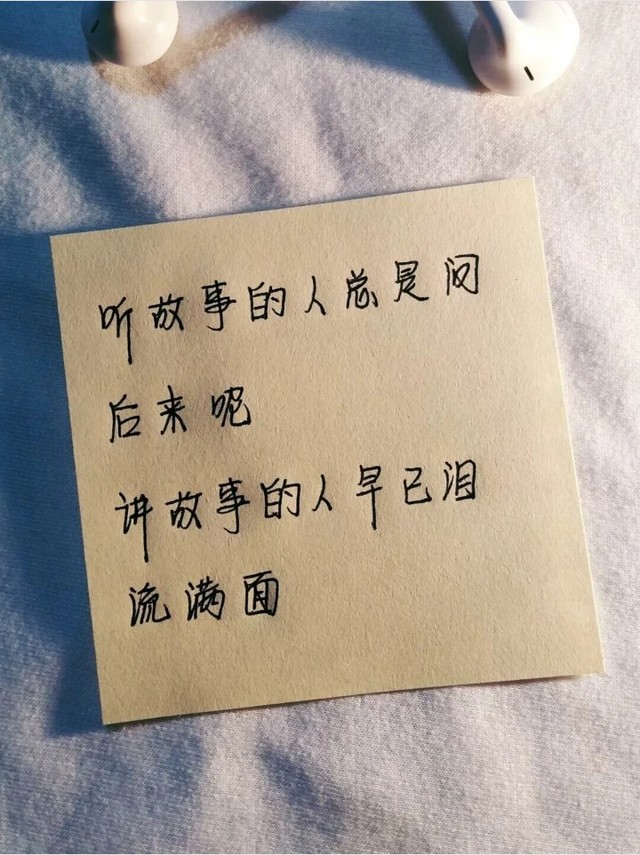 听故事的人总是问
后来呢
讲故事的人早已泪
流满面